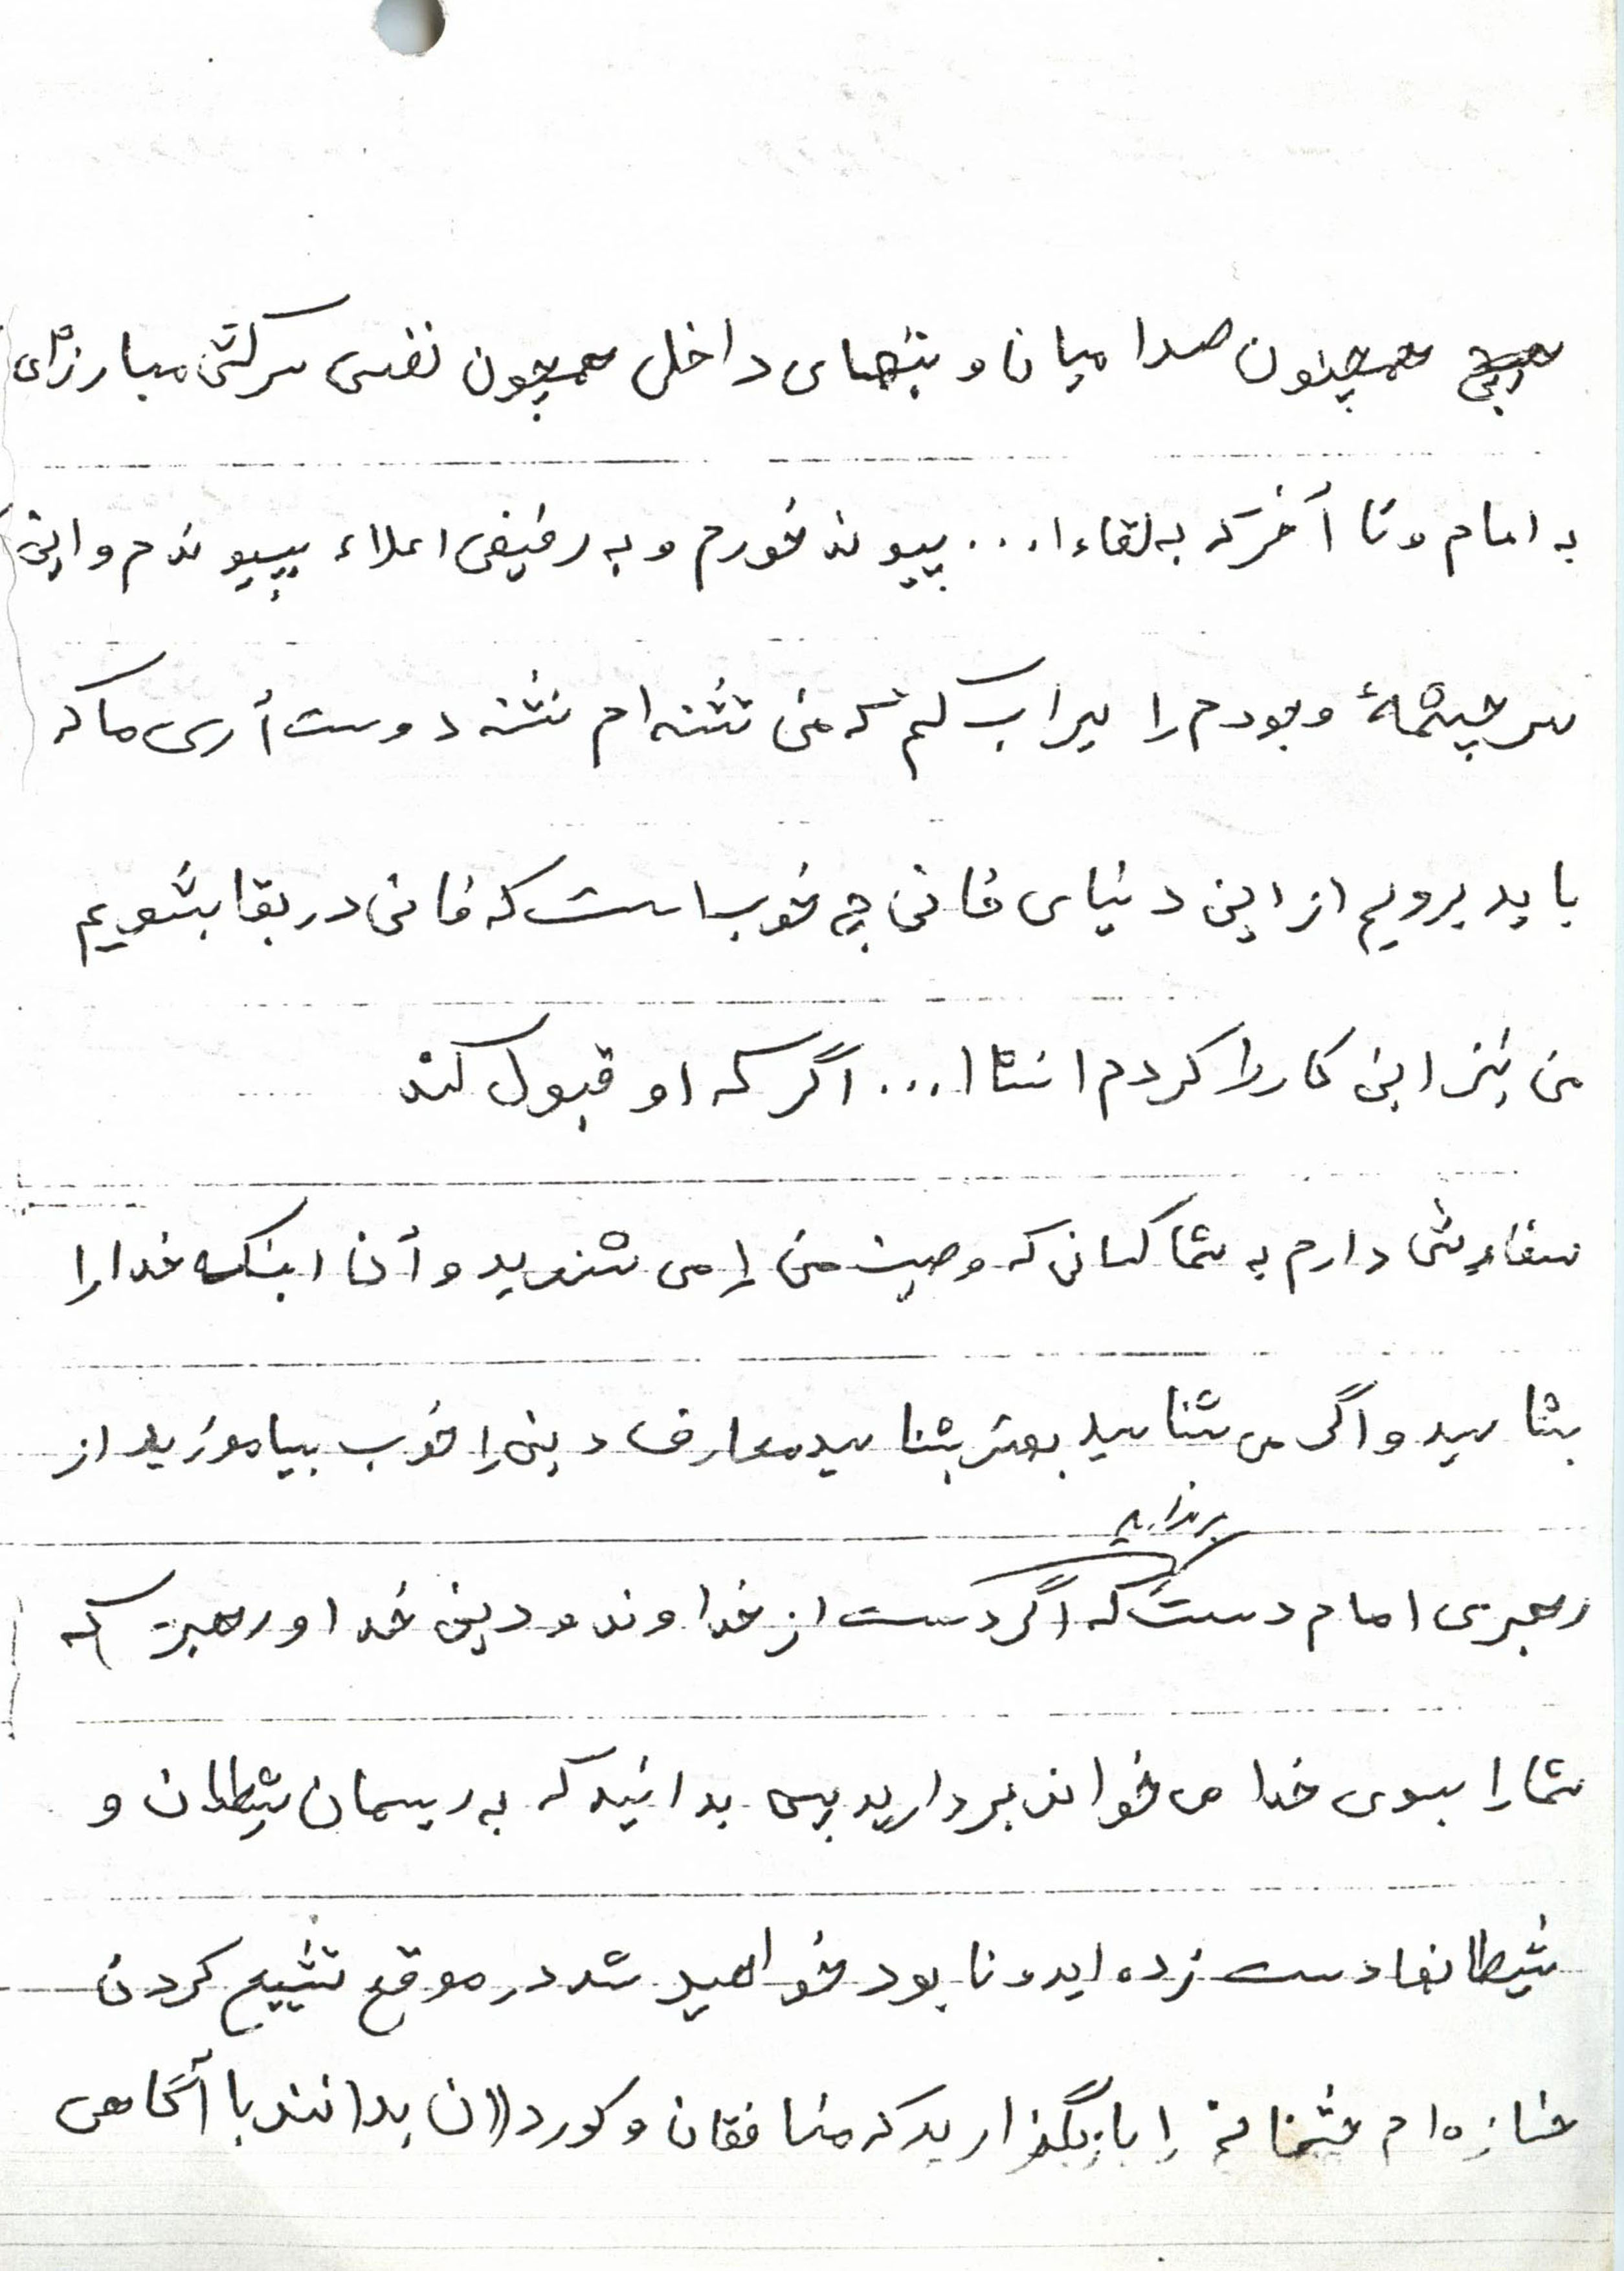 همچنون صدامیان و بتهای داخلی همچون نفس سرکش مبارزه‌ای
به امام و تا آخر که به لقاء ا... پیوند خورم و به رفیقی اعلاء بپیوندم و این
سرچشمهٔ وجودم را سیراب کنم که من تشنه‌ام تشنه دوست آری ما که
باید برویم از این دنیای فانی چه خوب است که فانی در بقا بشویم
من نیز این کار را کردم انشا ا... اگر که او قبول کند
سفارشی دارم به شما کسانی که وصیت من را می شنوید و آن اینکه خدا را
بشناسید و اگر می شناسید بهتر بشناسید معارف دینی را خوب بیاموزید از
برندارید
رهبری امام دست که اگر دست از خداوند و دین خدا و رهبرت که
شما را بسوی خدا می خواند بردارید پس بدانید که به ریسمان شیطان و
شیطانها دست زده اید و نابود خواهید شد در موقع تشییع کردن
جنازه ام چشمانم را باز بگذارید که منافقان و کوردلان بدانند با آگاهی